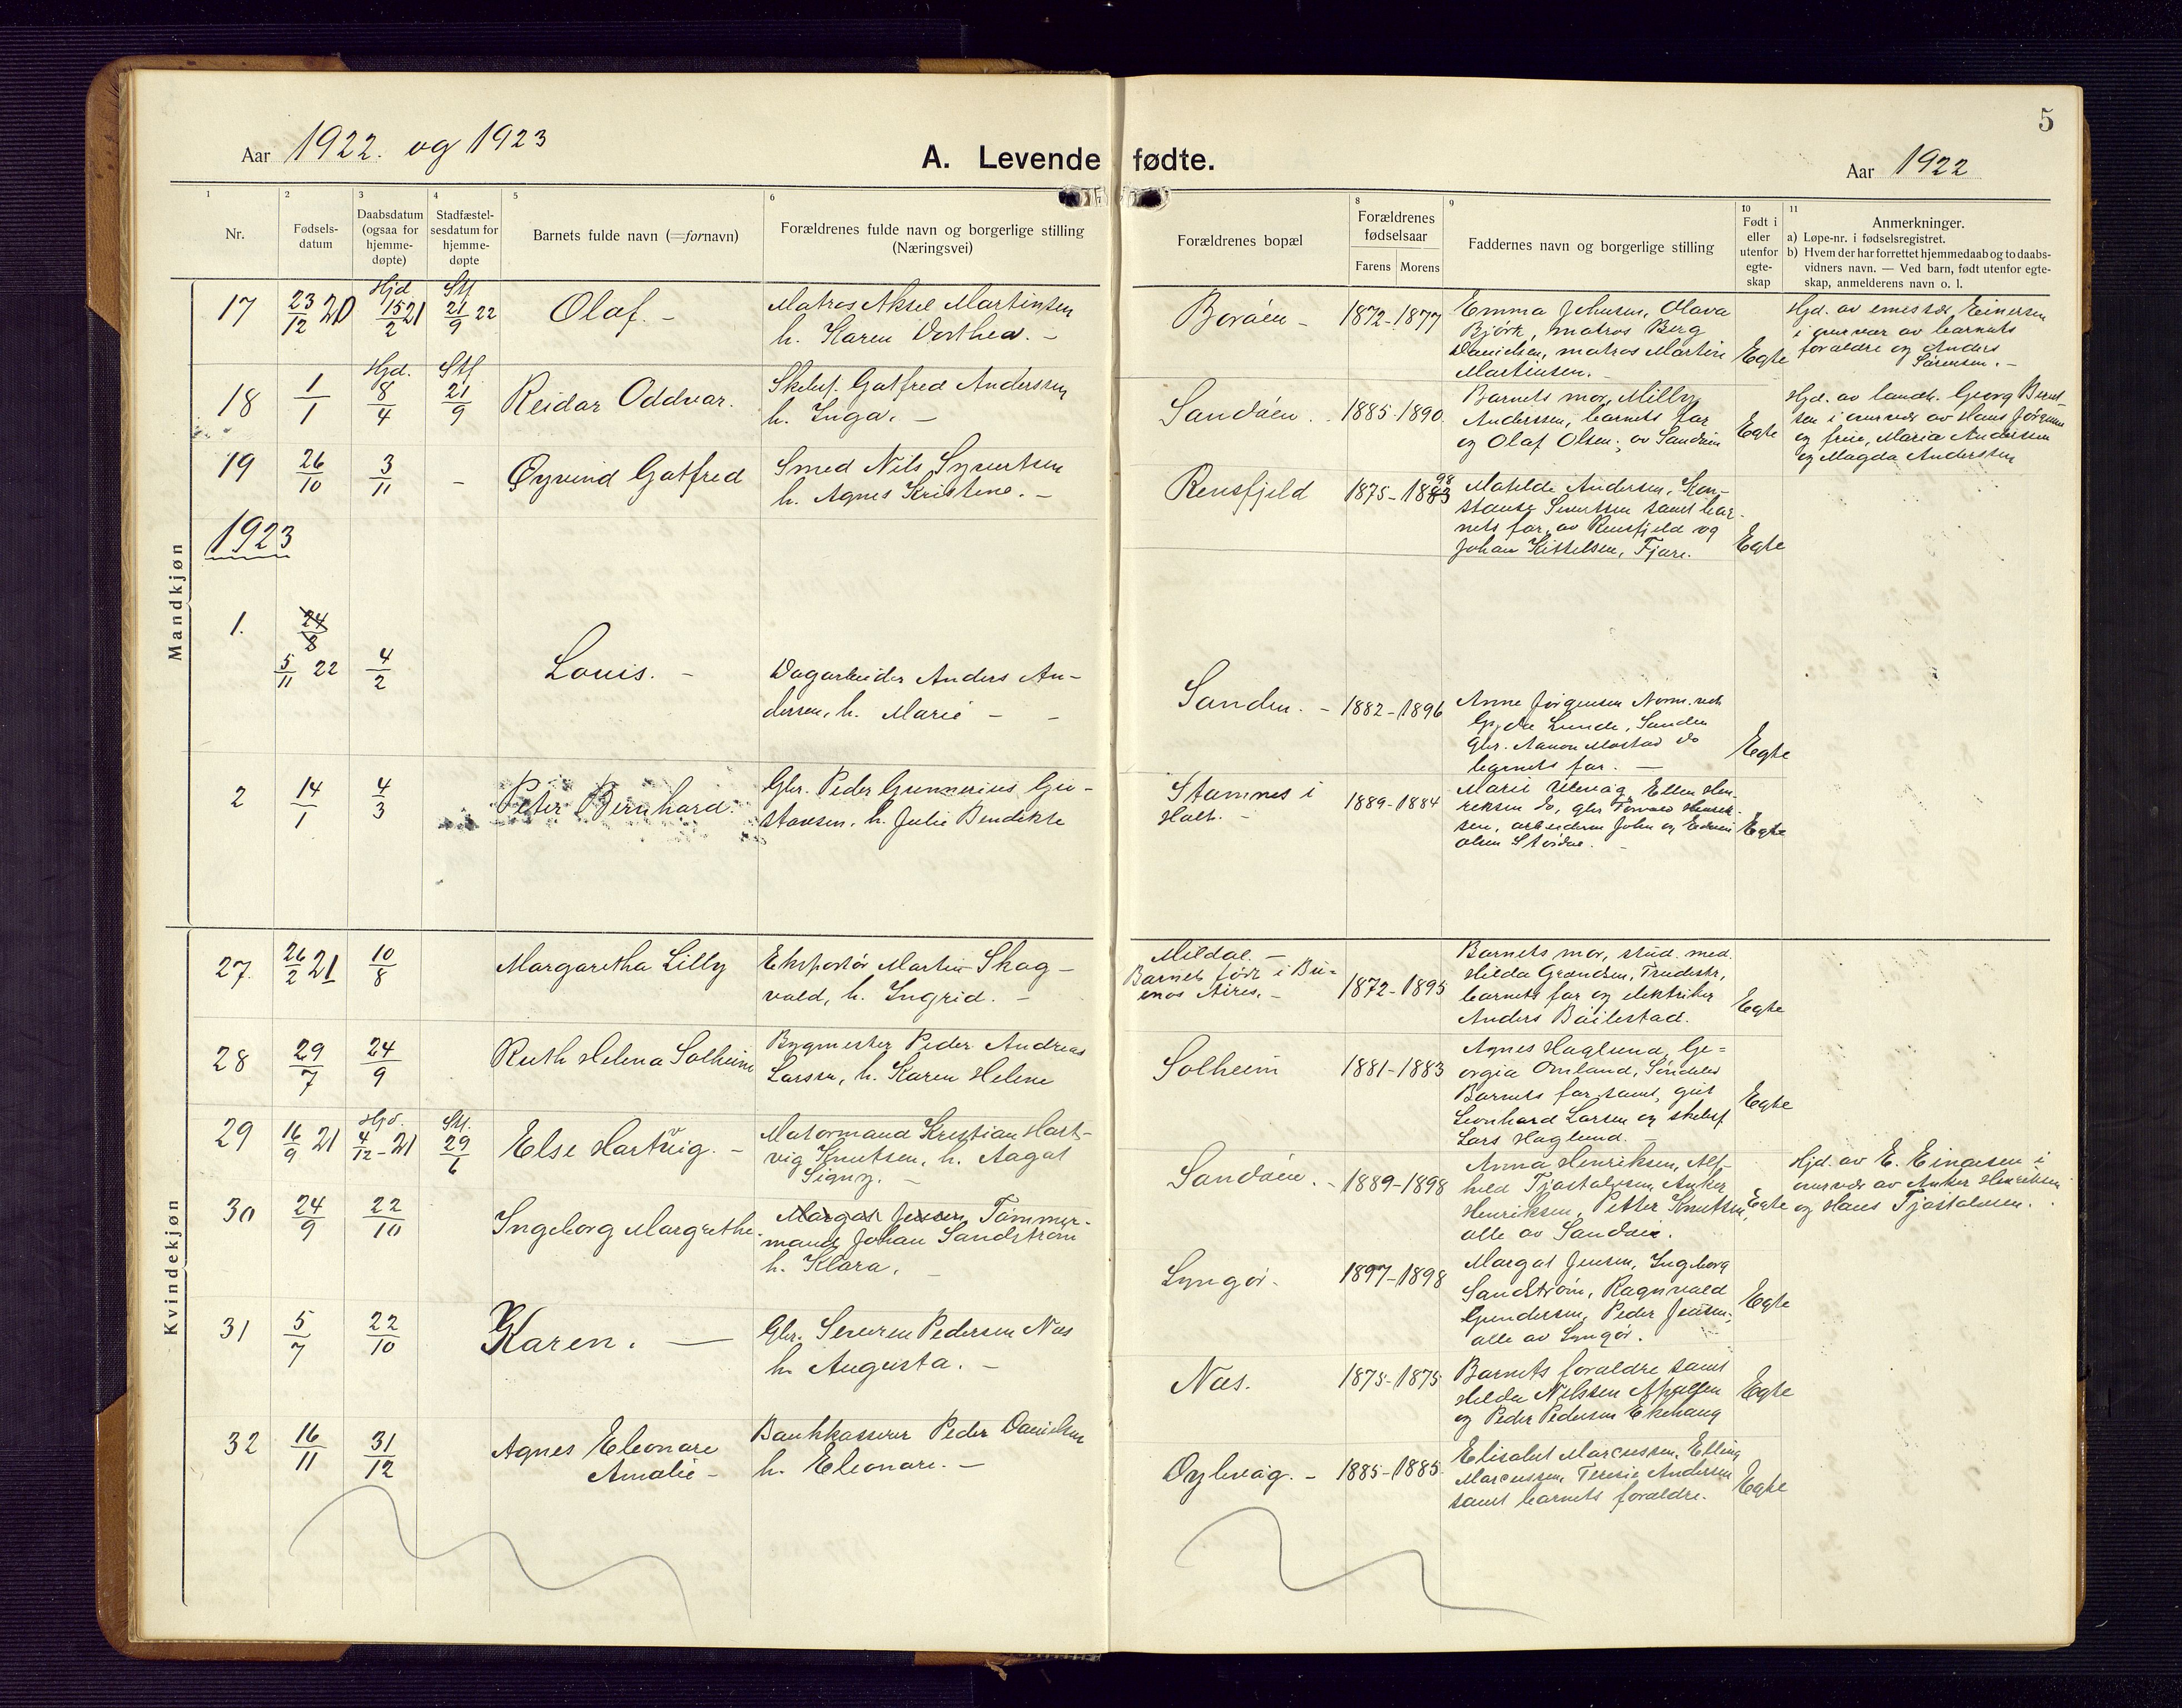 5
Aar 1922. og 1923
A. Levende fødte.
Aar 1922
1 2 3 4 5 6 8 9 10 11
Nr.
Fødsels-
datum
Daabsdatum
(ogsaa for
hjemme-
døpte)
Stadfæstel-
sesdatum for
hjemme-
døpte
Barnets fulde navn (=fornavn)
Forældrenes fulde navn og borgerlige stilling
(Næringsvei)
Forældrenes bopæl
Forældrenes
fødselsaar
Farens Morens
Faddernes navn og borgerlige stilling
Født i
eller
utenfor
egte-
skap
Anmerkninger.
a) Løpe-nr. i fødselsregistret.
b) Hvem der har forrettet hjemmedaab og to daabs-
vidners navn. — Ved barn, født utenfor egte-
skap, anmelderens navn o. l.
Mandkjøn
17 23/12 20 Hjd 15/2 21 Stf 21/9 22 Olaf. -
Matros Aksel Martinsen
h. Karen Dorthea. -
Borøen - 1872-1877
Emma Johnsen, Olava
Bjørk, matros Berg
Danielsen, matros Martin
Martinsen. -
Egte
Hjd. av emissær Einersen
i nærvær av barnets
forældre og Anders
Sørensen. -
18 1/1 Hjd. 8/4 Stf 21/9 Reidar Oddvar.
Skibsf. Gotfred Anderssen
h. Inga. -
Sandøen. 1885-1890.
Barnets mor, Milly
Anderssen, barnets far
og Olaf Olsen, av Sandøen
Egte
Hjd. av landh. Georg Bernt-
sen i nærvær av Hans Jørgensen
og frue, Maria Anderssen
og Magda Anderssen
19 26/10 3/11 - Øyvind Gotfred
Smed Nils Syvertsen
h. Agnes Kristine. -
Rensfjeld 1875-1883 98
Matilde Andersen, Kon-
stanse Sivertsen samt bar-
nets far, av Rensfjeld og
Johan Kittelsen, Fjære.
Egte
1923
1. 24/8
5/11 22 4/2 Louis. -
Dagarbeider Anders An-
dersen, h. Marie - -
Sanden. - 1882-1896
Anne Jørgensen
Gyda Lunde, Sanden
Gbr. Aanon Mostad do
barnets far. -
Egte
2 14/1 4/3 Peter Bernhard.
Gbr. Peder Gunnerius Gu-
stavsen, h. Julie Bendikte
Stamnes i
Holt. -
1889-1884
Marie Ulevåg, Ellen Hen-
riksen do, gbr Torvald Henrik-
sen, arbeiderne John og Edvin
Olsen Støsdal.
Egte
Kvindekjøn
27. 26/2 21 10/8 Margaretha Lilly
Eksportør Martin Skog-
vald, h. Ingrid. -
Mildal. -
Barnet født i Bu-
enos Aires. -
1872-1895
Barnets mor, stud. med.
Hilda Grændsen,
barnets far og elektriker
Anders Båilestad.
Egte
28 29/7 24/9 Ruth Helena Solheim
Bygmester Peder Andreas
Larsen, h. Karen Helene
Solheim 1881-1883
Agnes Haglund, Ge-
orgia Omland, Søndeled
Barnets far samt, gut
Leonhard Larsen og skibsf
Lars Haglund. -
Egte
29 16/9 21 Hjd. 4/12-21 Stf. 29/6 Else Hartvig. -
Motormand Kristian Hart-
vig Knutsen, h. Aagot
Signy. -
Sandøen. - 1889-1898
Anna Henriksen, Alf-
hild Tjostolvsen, Anker
Henriksen, Petter Knutsen,
alle av Sandøen.
Egte
Hjd. av E. Einarsen i
nærvær av Anker Henriksen
og Hans Tjostolvsen.
30 24/9 22/10 Ingeborg Margrethe.
Margot Jensen Tømmer-
mand Johan Sandstrøm
h. Klara. -
Lyngør. 1897-1898
Margot Jensen, Ingeborg
Sandstrøm, Ragnvald
Gundersen, Peder Jensen,
alle av Lyngør.
Egte
31 5/7 22/10 Karen. -
Gbr. Severen Pedersen Næs
h. Augusta. -
Næs. 1875-1875
Barnets forældre samt
Hilda Nilssen
og Peder Pedersen Ekehaug
Egte
32 16/11 31/12 Agnes Eleonore
Amalie -
Bankkasserer Peder Danielsen
h. Eleonore. -
Dybvåg. - 1885-1885
Elisabet Marcussen, Elling
Marcussen, Teresie Andersen
samt barnets forældre.
Egte